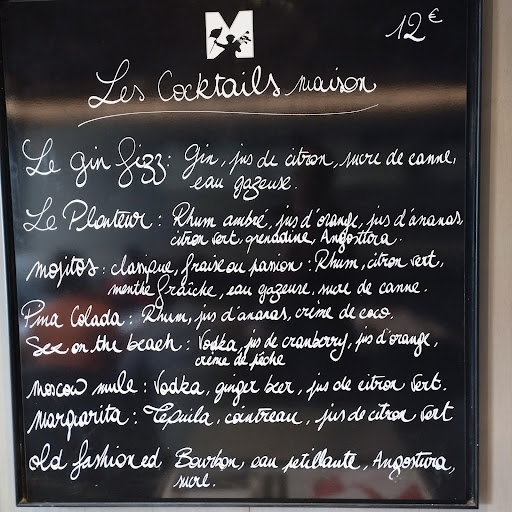 M
12€
Les Cocktails maison
Le gin fizz : Gin, jus de citron, sucre de canne,
eau gazeuse.
Le Planteur : Rhum ambré, jus d'orange, jus d'ananas
citron vert, grenadine, Angostura.
mojitos : classique, fraise ou passion : Rhum, citron vert,
menthe fraîche, eau gazeuse, sucre de canne.
Pina Colada : Rhum, jus d'ananas, crème de coco.
Sex on the beach : Vodka, jus de cranberry, jus d'orange,
crème de pêche
Moscow mule : Vodka, ginger beer, jus de citron vert.
Margarita : Tequila, cointreau, jus de citron vert
old fashioned Bourbon, eau pétillante, Angostura,
sucre.